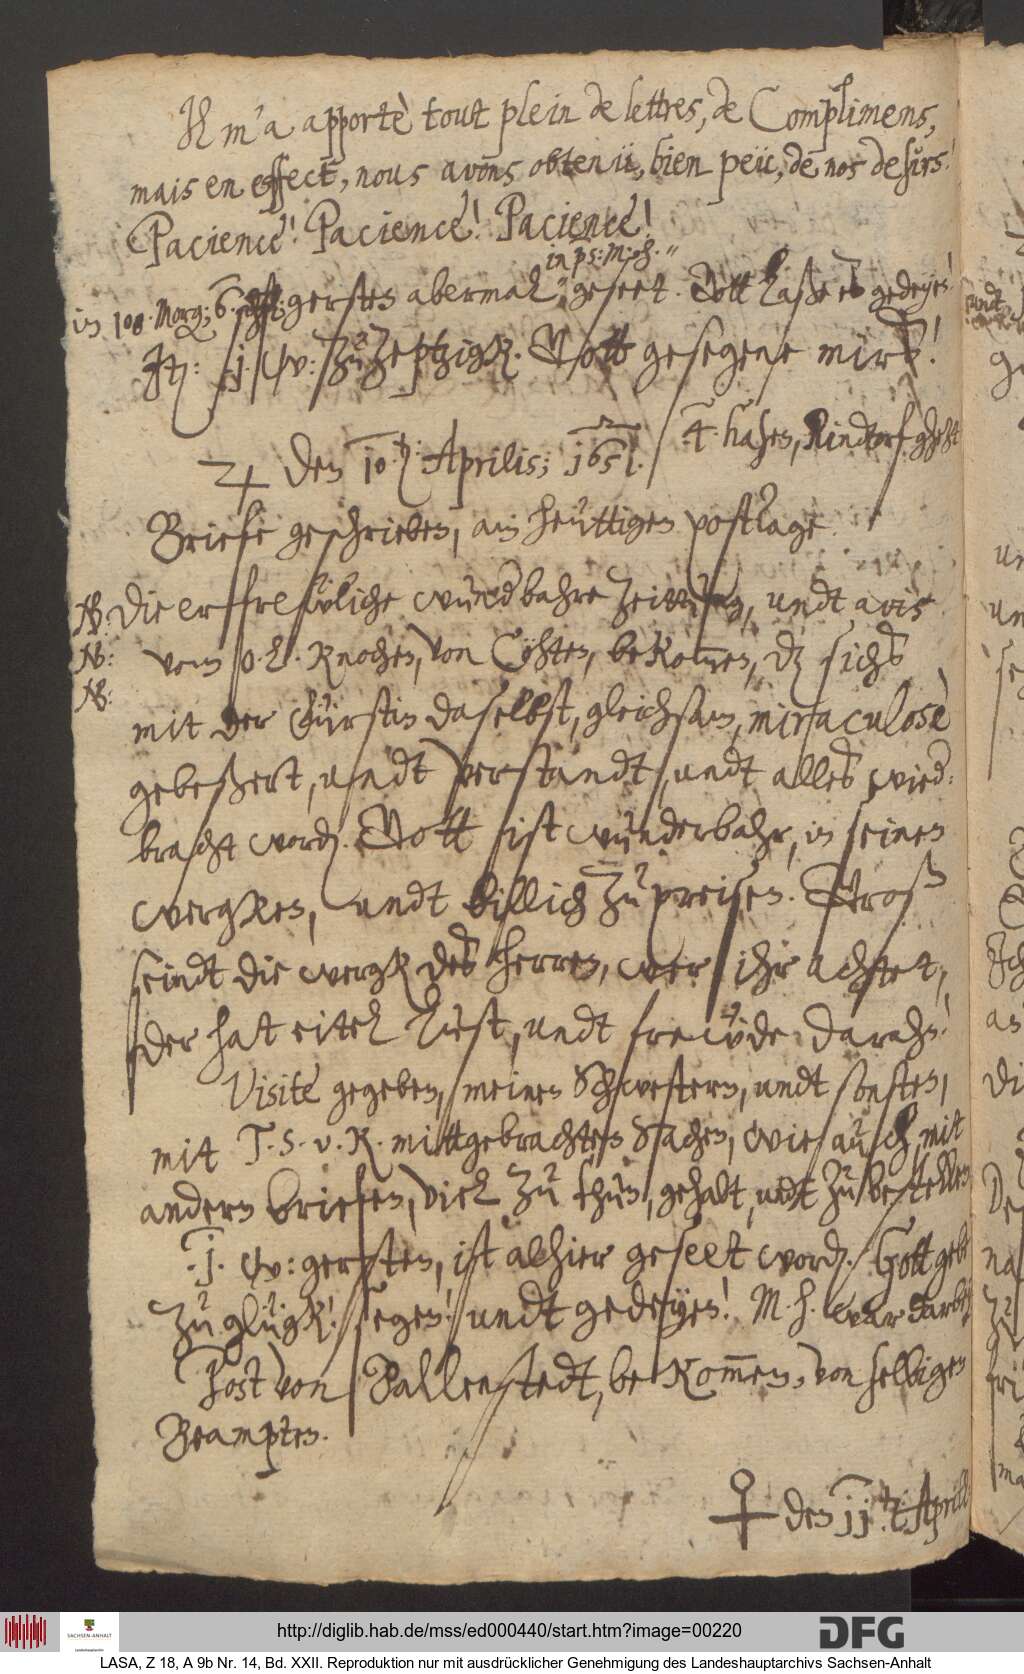 Il m'a apportè tout plein de lettres, de Complimens,
mais en effect, nous avons obtenü, bien peü, de nos desirs.
Pacience! Pacience! Pacience!
in ps: M: h.
in 100. Morg; 6. gersten abermal, geseet. Gott laße es gedeyen!
It: j. W: zu Zeptzigk. Gott gesegene mirs!
4. hasen, Rindorf gehezt
♃ den 10. Aprilis; 1651.
Briefe geschrieben, am heüttigen posttage.
NB: Die erfrewliche wunderbahre Zeitung, undt avis
NB: vom O. L. Knochen, von Cöhten, bekommen, dz sichs
NB: mit der Fürstin daselbst, gleichsam, miraculosè
gebeßert, undt verstandt, undt alles wied:
bracht word. Gott ist wunderbahr, in seinen
wergken, undt billich zu preisen. Groß
seindt die wergk des Herren, wer ihr achtet,
der hat eitel lust, undt frewde daran!
Visite gegeben, meinen Schwestern, undt sonsten,
mit T. S. v. R. mittgebrachten Sachen, wie auch, mit
andern briefen, viel zu thun, gehabt, undt zu bestellen
.j. W: gersten, ist alhier geseet word. Gott gebe
zu glügk! segen! undt gedeyen! M. h. war darbey
Post von Ballenstedt, bekommen, von selbigen
Beampten.
♀ den jj. Aprill
http://diglib.hab.de/mss/ed000440/start.htm?image=00220
DFG
SACHSEN-ANHALT
LASA, Z 18, A 9b Nr. 14, Bd. XXII. Reproduktion nur mit ausdrücklicher Genehmigung des Landeshauptarchivs Sachsen-Anhalt